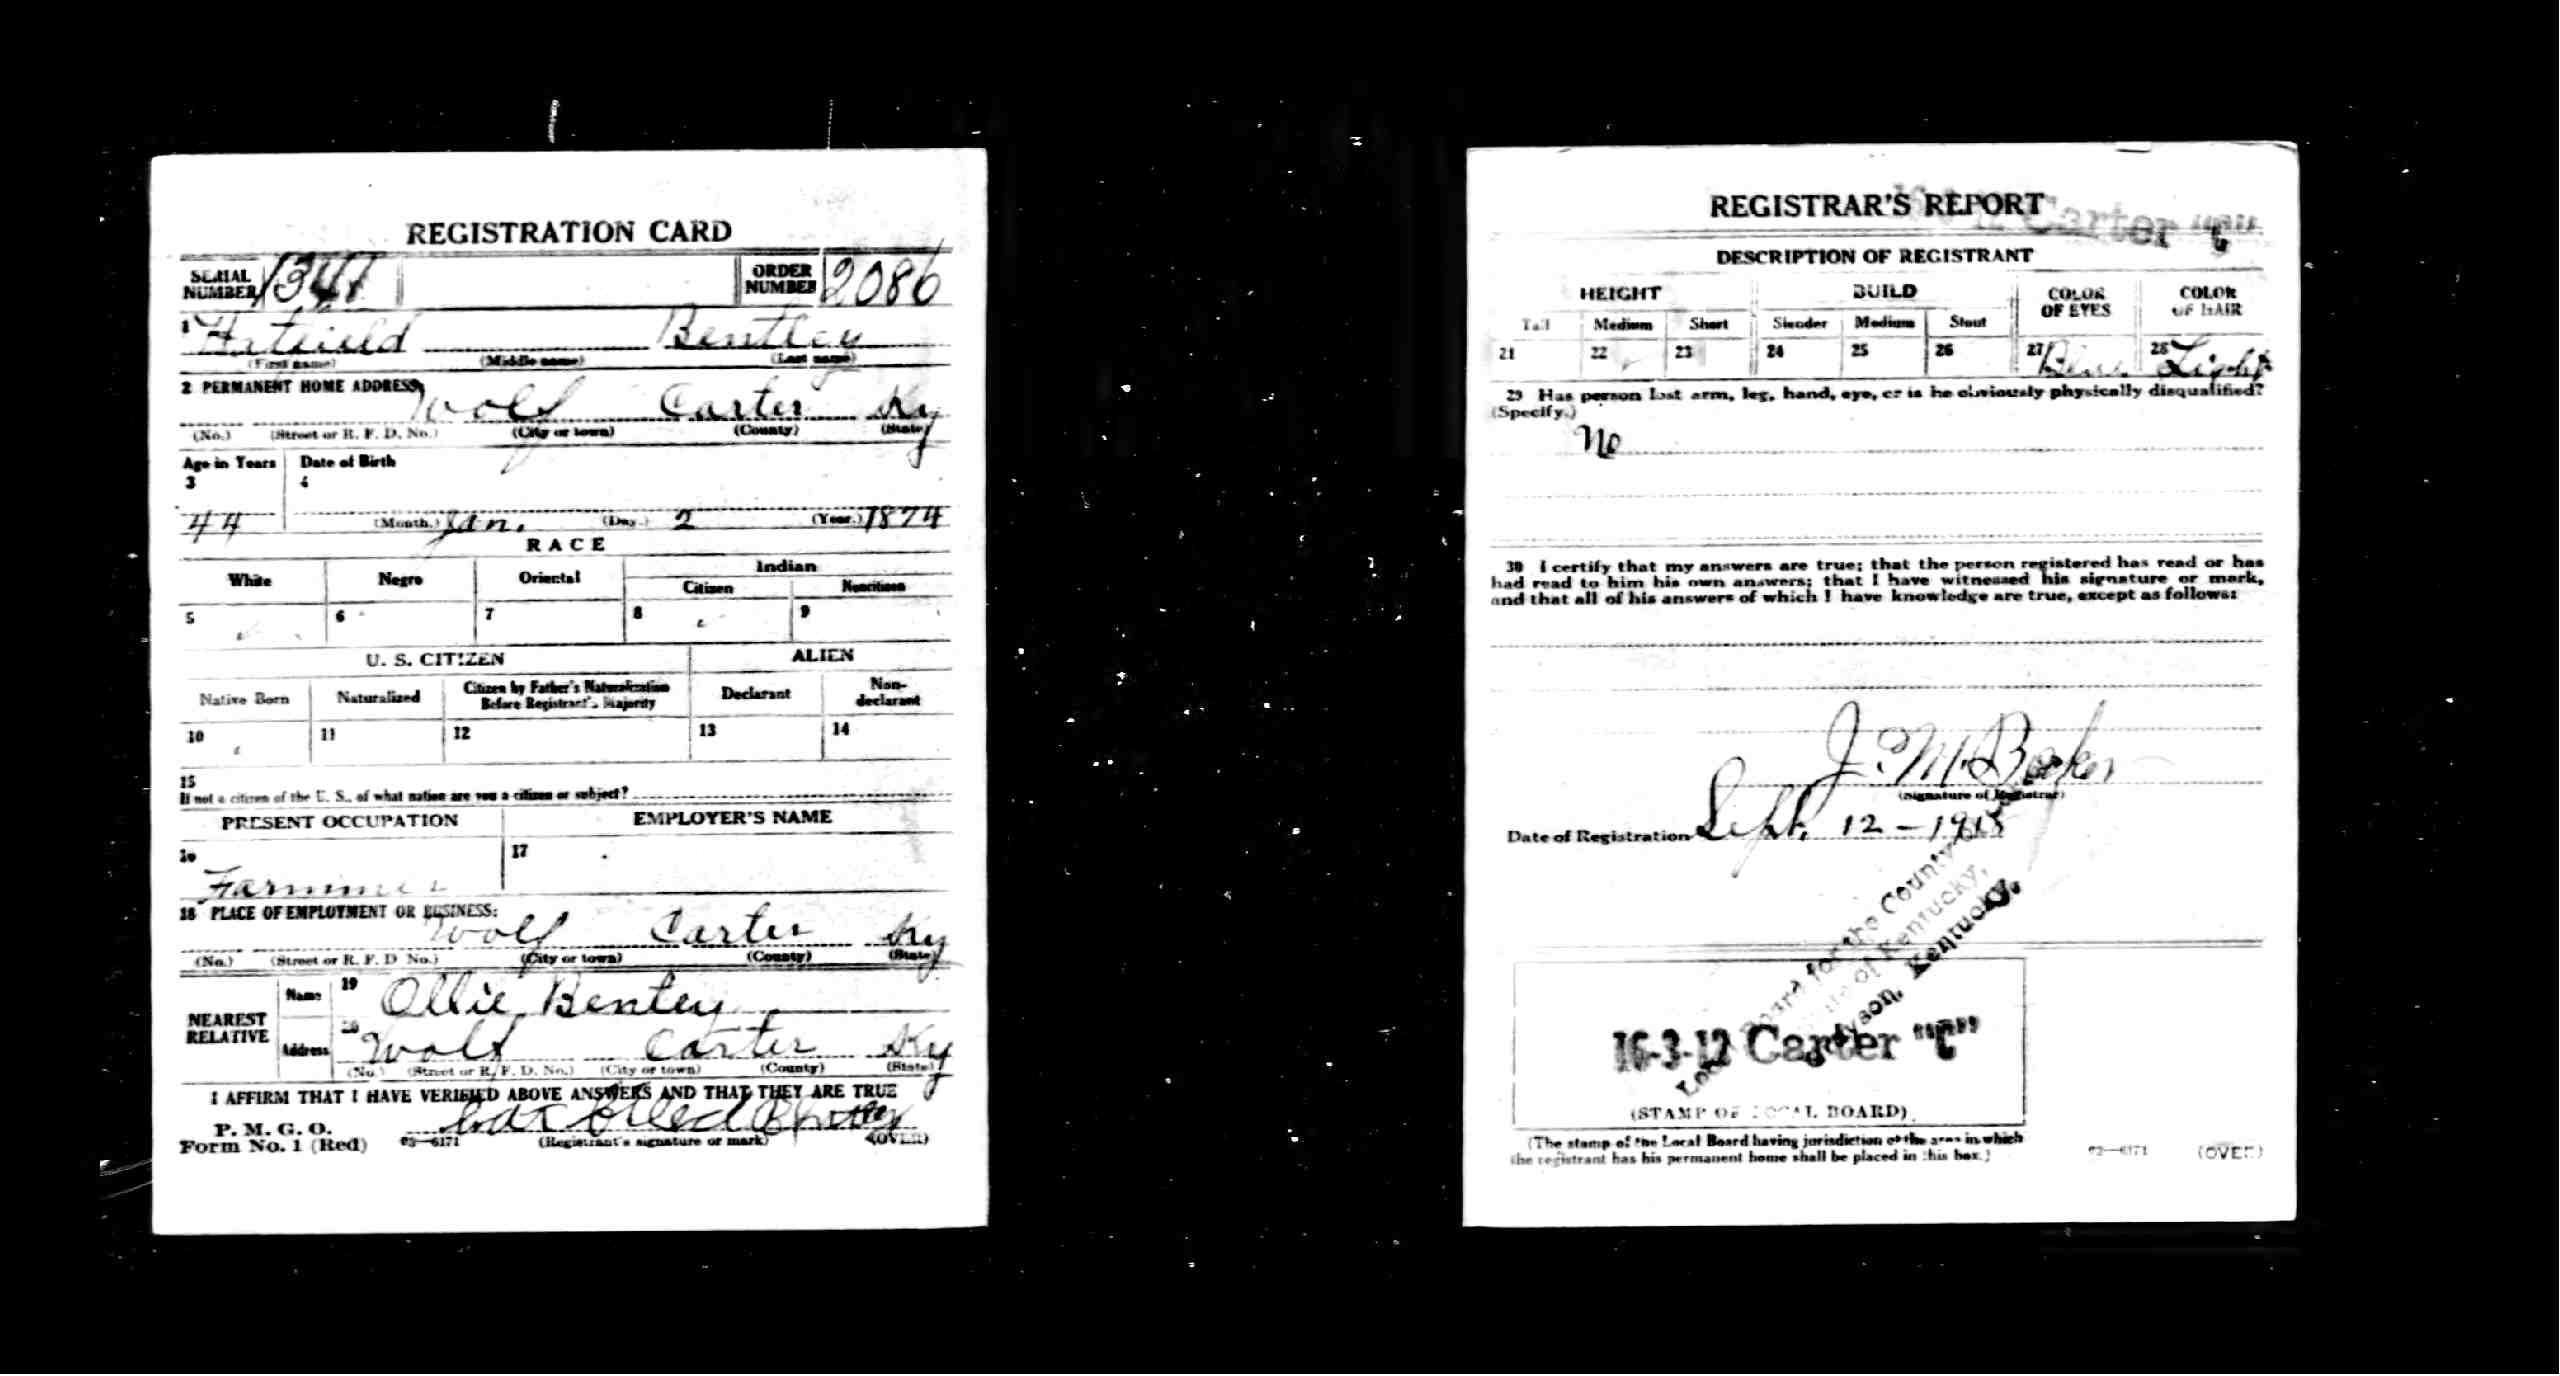 REGISTRATION CARD
SERIAL NUMBER 1341 ORDER NUMBER 2086
1 Hatfield Bentley
(First name) (Middle name) (Last name)
2 PERMANENT HOME ADDRESS
Wolf Carter Ky
(No.) (Street or R. F. D. No.) (City or town) (County) (State)
Age in Years Date of Birth
3 4
44 (Month.) Jan. (Day.) 2 (Year.) 1874
RACE
White Negro Oriental Indian
Citizen Noncitizen
5 6 7 8 9
U. S. CITIZEN ALIEN
Native Born Naturalized Citizen by Father's Naturalization Before Registrant's Majority Declarant Non-declarant
10 11 12 13 14
15
If not a citizen of the U. S., of what nation are you a citizen or subject?
PRESENT OCCUPATION EMPLOYER'S NAME
16 17
Farmmer
18 PLACE OF EMPLOYMENT OR BUSINESS:
Wolf Carter Ky
(No.) (Street or R. F. D No.) (City or town) (County) (State)
NEAREST RELATIVE
Name 19 Ollie Bentley
Address 20 Wolf Carter Ky
(No.) (Street or R. F. D. No.) (City or town) (County) (State)
I AFFIRM THAT I HAVE VERIFIED ABOVE ANSWERS AND THAT THEY ARE TRUE
P. M. G. O.
Form No. 1 (Red) 03—6171 (Registrant's signature or mark) (OVER)
REGISTRAR'S REPORT
Carter
DESCRIPTION OF REGISTRANT
HEIGHT BUILD COLOR OF EYES COLOR OF HAIR
Tall Medium Short Slender Medium Stout
21 22 23 24 25 26 27 Blue 28 Light
29 Has person lost arm, leg, hand, eye, or is he obviously physically disqualified?
(Specify.)
No
30 I certify that my answers are true; that the person registered has read or has
had read to him his own answers; that I have witnessed his signature or mark,
and that all of his answers of which I have knowledge are true, except as follows:
J. M. Booker
(Signature of Registrar)
Date of Registration Sept. 12 - 1918
Board for the County of
of Kentucky,
Kentucky.
16-3-12 Carter "C"
(STAMP OF LOCAL BOARD)
(The stamp of the Local Board having jurisdiction of the area in which
the registrant has his permanent home shall be placed in this box.)
03—6171 (OVER)